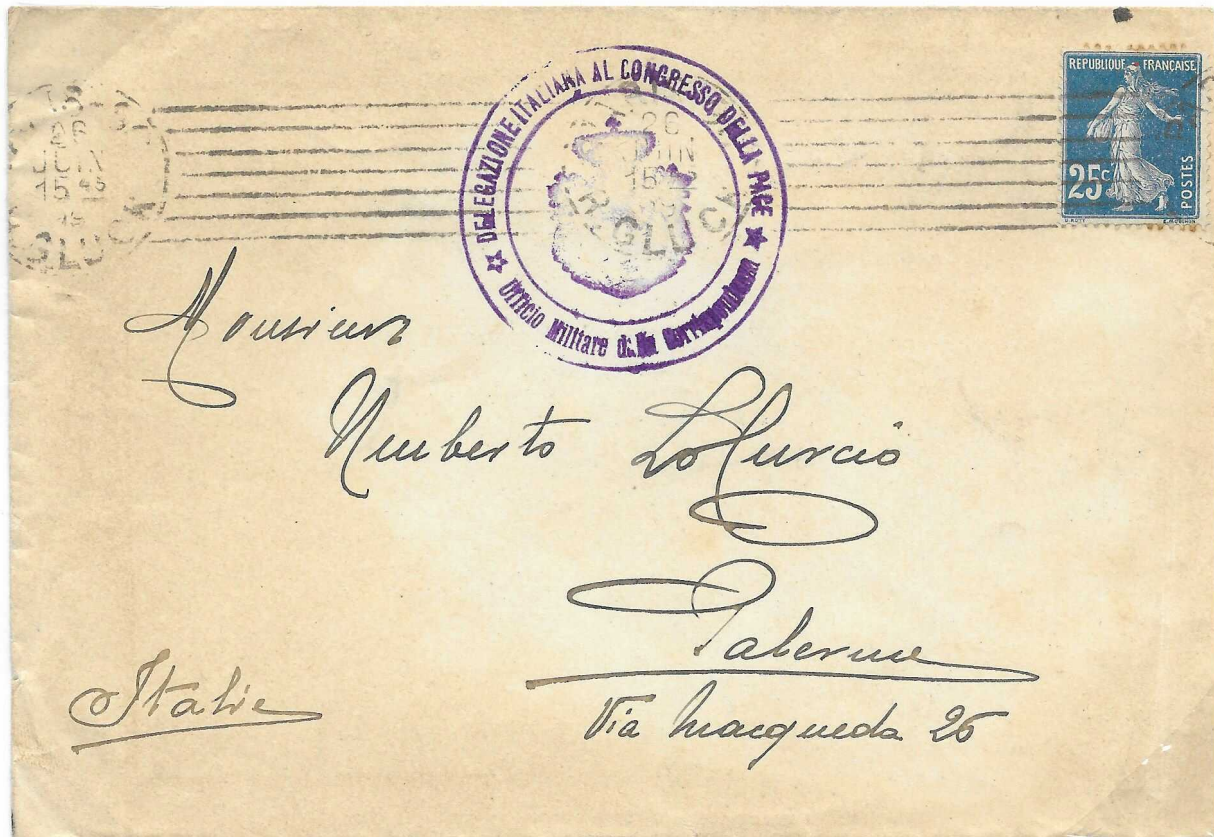 DELEGAZIONE ITALIANA AL CONGRESSO DELLA PACE
Ufficio Militare della Corrispondenza
26
JUIN
15
GLUCK
REPUBLIQUE FRANÇAISE
25c
POSTES
Monsieur
Umberto LoCurcio
Palerme
Via Macqueda 26
Italie